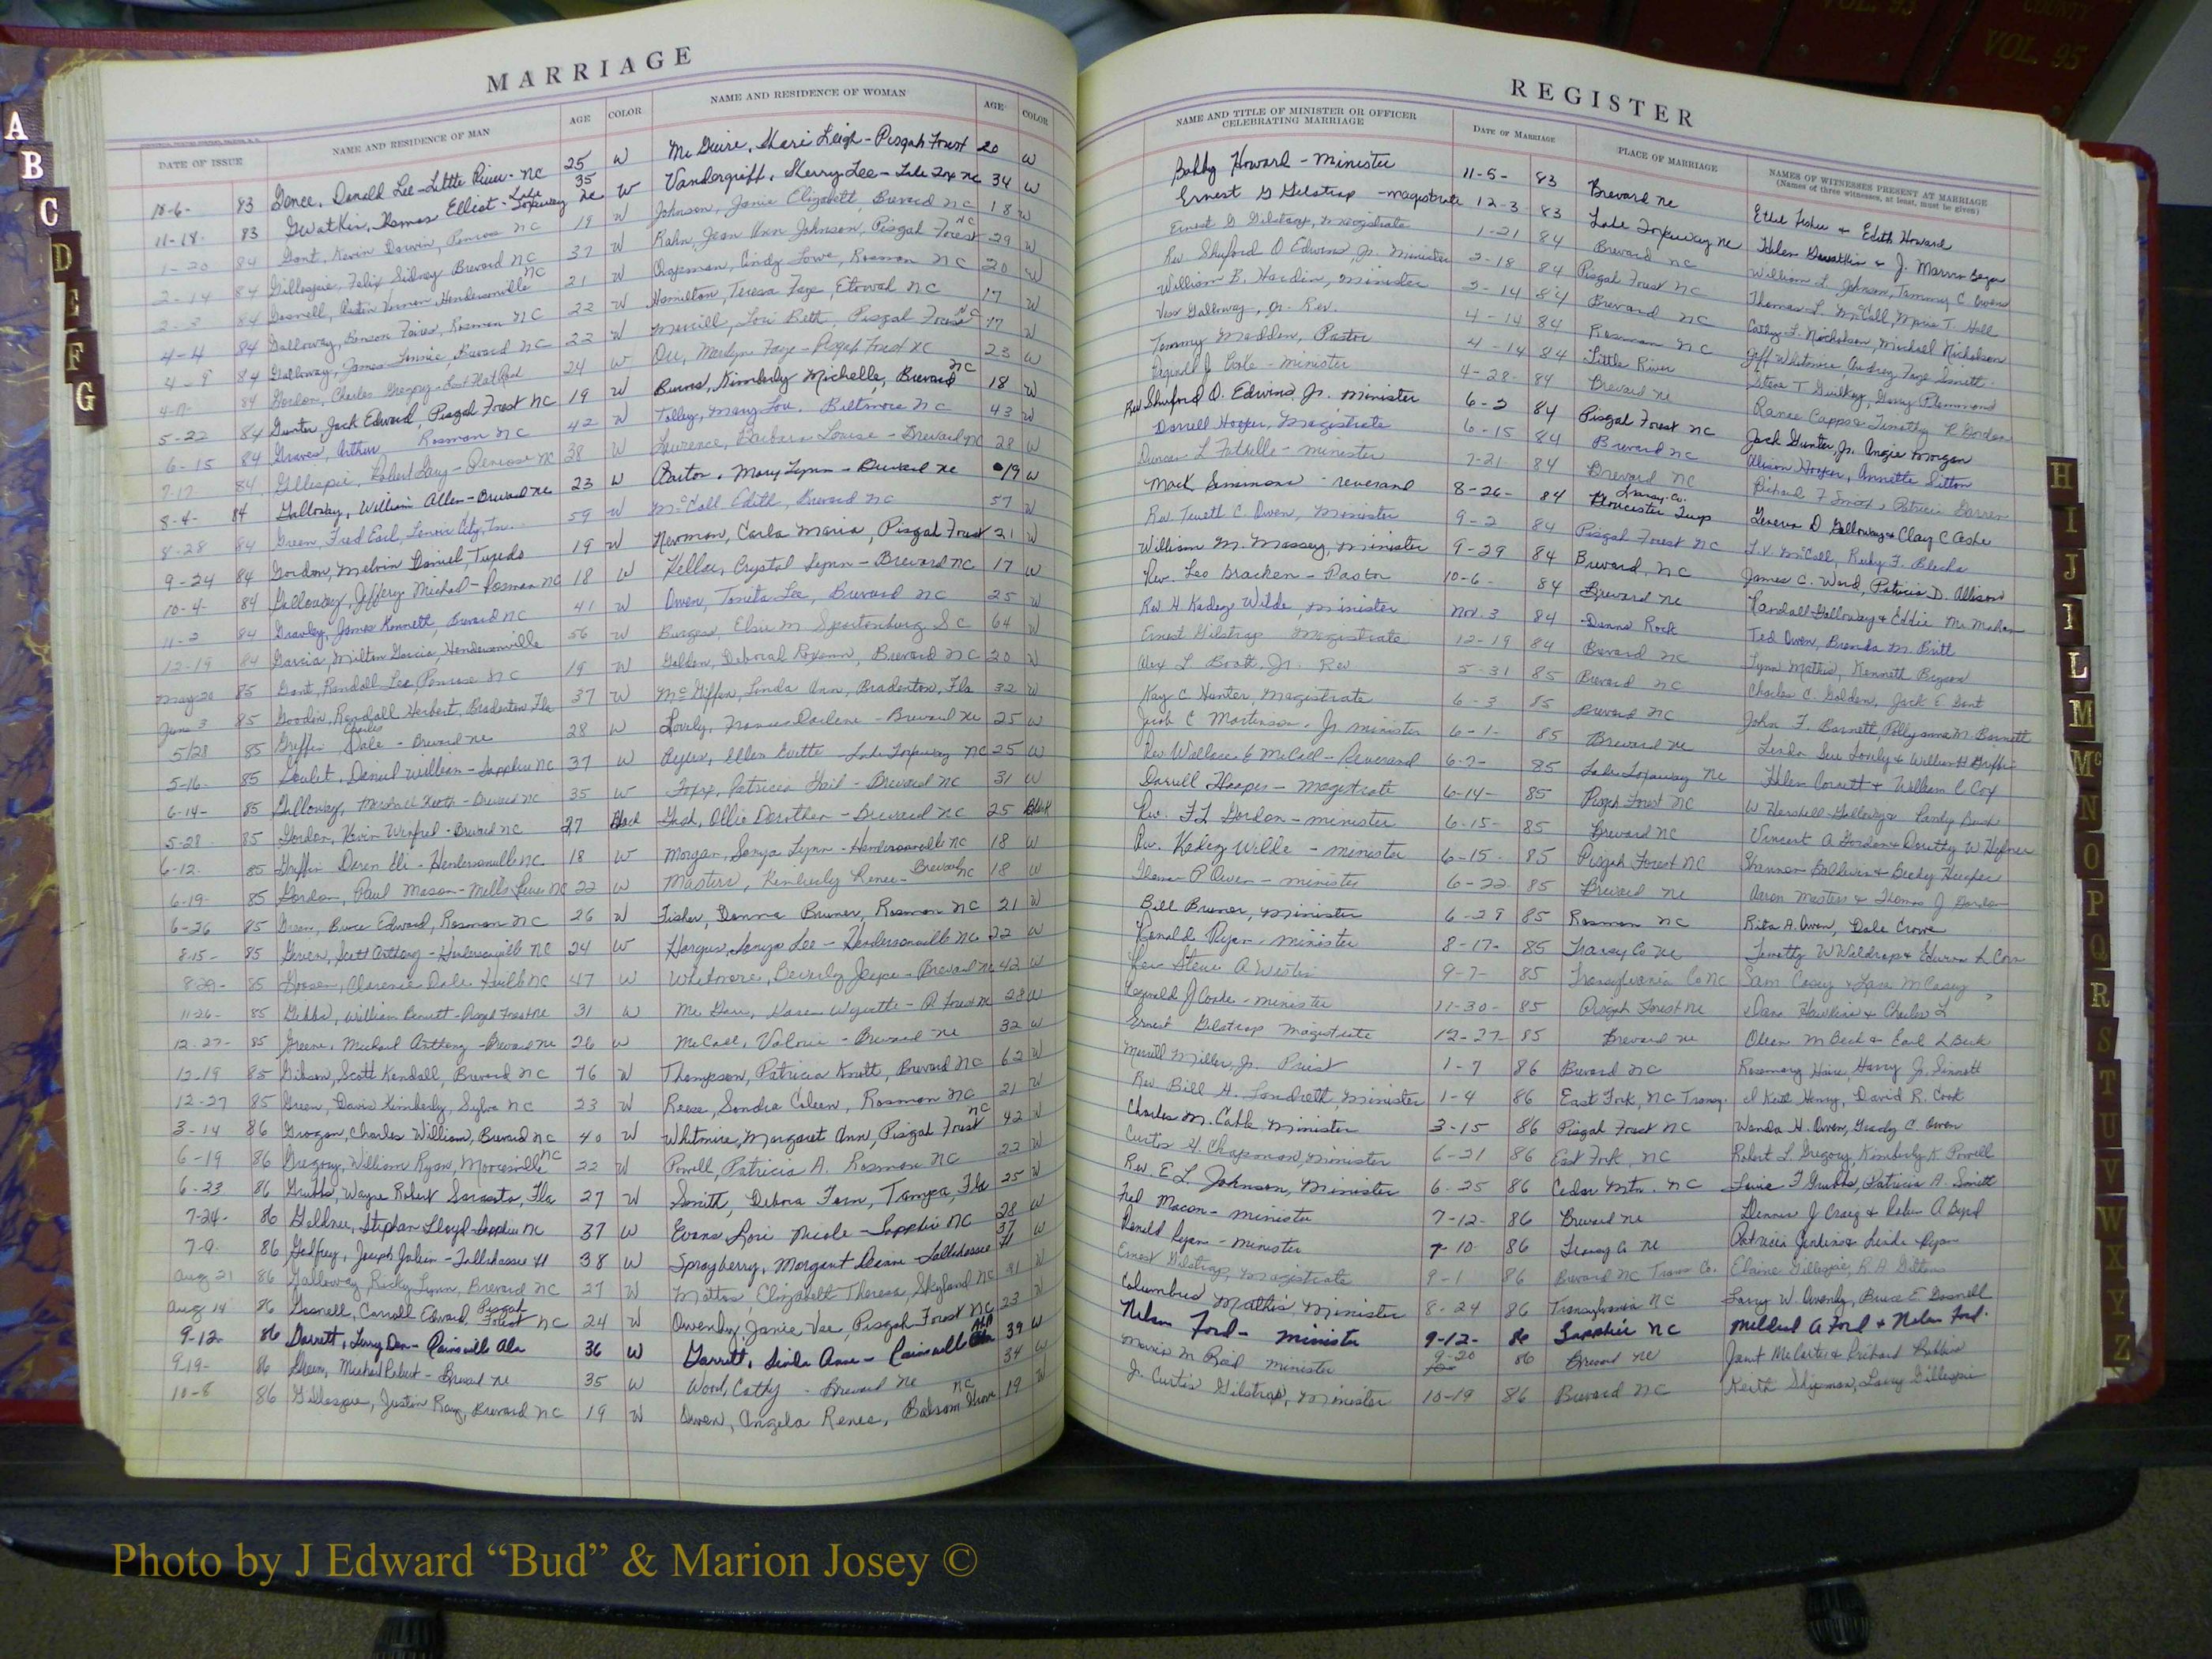 COUNTY
VOL. 93
VOL. 95
MARRIAGE
DATE OF ISSUE NAME AND RESIDENCE OF MAN AGE COLOR NAME AND RESIDENCE OF WOMAN AGE COLOR
10-6- 83 Donald Lee - Little River - NC 25 W McGuire, Shari Leigh - Pisgah Forest 20 W
11-18- 83 Gwatkin, Thomas Elliot - Lake Toxaway NC 35 W Vandergriff, Sherry Lee - Lake Tox NC 34 W
1-20 84 Gant, Kevin Darwin, Penrose NC 19 W Johnson, Janie Elizabeth, Brevard NC 18 W
2-14 84 Gillespie, Felix Sidney Brevard NC 37 W Rahn, Jean Ann Johnson, Pisgah Forest NC 29 W
84 Gosnell, Vernon Hendersonville NC 21 W Chapman, Cindy Lowe, Rosman NC 20 W
4-4 84 Galloway, Benson Rosman NC 22 W Hamilton, Teresa Faye, Etowah NC 17 W
4-9 84 Galloway, James Lonnie, Brevard NC 22 W Merrill, Lori Beth, Pisgah Forest NC 17 W
84 Gordon, Charles Gregory - 24 W Marilyn Faye - Pisgah Forest NC 23 W
5-22 84 Gunter, Jack Edward, Pisgah Forest NC 19 W Burns, Kimberly Michelle, Brevard NC 18 W
6-15 84 Graves, Arthur, Rosman NC 42 W Tolley, Mary Lou, Biltmore NC 43 W
7-17 84 Gillespie, Robert - Penrose NC 38 W Lawrence, Barbara Louise - Brevard NC 28 W
8-4- 84 Galloway, William Allen - Brevard NC 23 W Barton, Mary Lynn - Brevard NC 19 W
8-28 84 Green, Fred Earl, Lenoir City, Tn. 59 W McCall Edith, Brevard NC 57 W
9-24 84 Gordon, Melvin Daniel, Tuxedo 19 W Newman, Carla Maria, Pisgah Forest 21 W
10-4- 84 Galloway, Jeffery Michael - Rosman NC 18 W Keller, Crystal Lynn - Brevard NC 17 W
11-2 84 Gravley, James Kenneth, Brevard NC 41 W Owen, Lee, Brevard NC 25 W
12-19 84 Garcia Milton Garcia, Hendersonville 56 W Burgess, Elsie M Spartanburg S C 64 W
May 20 85 Gant, Randall Lee, Penrose NC 19 W Golden, Deborah Roxann, Brevard NC 20 W
June 3 85 Goodin, Randall Herbert, Bradenton Fla 37 W McGiffen, Linda Ann, Bradenton, Fla 32 W
5/28 85 Griffin Charles Dale - Brevard NC 28 W Lovely, Frances Darlene - Brevard NC 25 W
5-16- 85 Goulet, Daniel William - Sapphire NC 37 W Ellen Evette - Lake Toxaway NC 25 W
6-14- 85 Galloway, Michael Keith - Brevard NC 35 W Patricia Gail - Brevard NC 31 W
5-28- 85 Gordon, Kevin Winfred - Brevard NC 27 Black Gash, Ollie Dorothea - Brevard NC 25 Black
6-12- 85 Griffin Deren Eli - Hendersonville NC 18 W Morgan, Sonja Lynn - Hendersonville NC 18 W
6-19- 85 Gordon, Paul Mason - Mills River NC 22 W Masters, Kimberly Renee - Brevard NC 18 W
6-26 85 Green, Bruce Edward, Rosman NC 26 W Fisher, Donna Bruner, Rosman NC 21 W
8-15- 85 Scott Anthony - Hendersonville NC 24 W Lee - Hendersonville NC 22 W
85 Clarence Dale NC 47 W Whitmore, Beverly Joyce - Brevard NC 42 W
11-26- 85 Gibbs, William Bennett - Pisgah Forest NC 31 W Karen Wyvette - P. Forest NC 28 W
12-27- 85 Greene, Michael Anthony - Brevard NC 26 W McCall, Valorie - Brevard NC 32 W
12-19 85 Gibson, Scott Kendall, Brevard NC 76 W Thompson, Patricia Knott, Brevard NC 62 W
12-27 85 Green, David Kimberly, Sylva NC 23 W Reese, Sondra Coleen, Rosman NC 21 W
3-14 86 Grogan, Charles William, Brevard NC 40 W Whitmire, Margaret Ann, Pisgah Forest NC 42 W
6-19 86 Gregory, William Ryan, Mooresville NC 22 W Powell, Patricia A. Rosman NC 22 W
6-23 86 Grubbs, Wayne Robert Sarasota, Fla 27 W Smith, Debora Fern, Tampa, Fla 25 W
7-24- 86 Stephan Lloyd - Sapphire NC 37 W Evans, Lori Nicole - Sapphire NC 28 W
7-9- 86 Godfrey, Joseph Julian - Tallahassee Fl 38 W Sprayberry, Margaret Diane - Tallahassee Fl 37 W
Aug 21 86 Galloway, Ricky Lynn, Brevard NC 27 W Elizabeth Theresa, Skyland NC 31 W
Aug 14 86 Gosnell, Carroll Edward, Pisgah Forest NC 24 W Owenby, Janie Vee, Pisgah Forest NC 23 W
9-12- 86 Garrett, Terry Don - Rainsville Ala 36 W Garrett, Linda Anne - Rainsville Ala 39 W
9-19- 86 Michael Robert - Brevard NC 35 W Wood, Cathy - Brevard NC 34 W
10-8 86 Gillespie, Justin Ray, Brevard NC 19 W Owen, Angela Renee, Balsam Grove NC 19 W
REGISTER
NAME AND TITLE OF MINISTER OR OFFICER CELEBRATING MARRIAGE DATE OF MARRIAGE PLACE OF MARRIAGE NAMES OF WITNESSES PRESENT AT MARRIAGE (Names of three witnesses, at least, must be given)
Bobby Howard - Minister 11-5- 83 Brevard NC Ethel Fisher & Edith Howard
Ernest G Gilstrap - Magistrate 12-3 83 Lake Toxaway NC Helen Gwatkin & J. Marvin
Ernest G Gilstrap, Magistrate 1-21 84 Brevard NC William L. Johnson, Tammy C Owens
Rev Shuford O Edwins, Jr. Minister 2-18 84 Pisgah Forest NC Thomas L. McCall, T. Hall
William B. Hardin, Minister 2-14 84 Brevard NC Cathy L. Nicholson, Michael Nicholson
Galloway, Jr. Rev. 4-14 84 Rosman NC Jeff Whitmire, Audrey Faye Smith
Tommy Madden, Pastor 4-14 84 Little River Steve T Guilkey,
Cooke - Minister 4-28- 84 Brevard NC Capps & Timothy R Gordon
Rev Shuford O. Edwins, Jr. Minister 6-2 84 Pisgah Forest NC Jack Gunter, Jr. Angie Morgan
Darrell Hooper, Magistrate 6-15 84 Brevard NC Alison Hooper, Annette Sitton
Duncan L - Minister 7-21 84 Brevard NC Richard F Patricia Warren
Mack Simmons - Reverend 8-26- 84 Transy. Co. Gloucester Twp Geneva D Galloway & Clay C Ashe
Rev Tewett C. Owen, Minister 9-2 84 Pisgah Forest NC McCall, Ricky F.
William M. Massey, Minister 9-29 84 Brevard, NC James C. Ward, Patricia D. Allison
Rev. Leo Bracken - Pastor 10-6- 84 Brevard NC Randall Galloway & Eddie McMahan
Rev H Kadez Wilde, Minister Nov. 3 84 Rock Ted Owen, Brenda M. Britt
Ernest Gilstrap Magistrate 12-19 84 Brevard NC Lynn Mathis, Kenneth Bryson
Alex L Booth, Jr. Rev 5-31 85 Brevard NC Charles C. Golden, Jack E. Gant
Kay C Hunter, Magistrate 6-3 85 Brevard NC John F. Barnett, Pollyanna M. Barnett
Jacob C Martinson, Jr. Minister 6-1- 85 Brevard NC Linda Sue Lovely & William H Griffin
Rev Wallace E McCall - Reverend 6-7- 85 Lake Toxaway NC Helen & William C Cox
Darrell Hooper - Magistrate 6-14- 85 Pisgah Forest NC W Hershell Galloway &
Rev. F L Gordon - Minister 6-15- 85 Brevard NC Vincent A Gordon & Dorothy W Hefner
Rev. Kadez Wilde - Minister 6-15- 85 Pisgah Forest NC Shannon Baldwin & Becky Hooper
P Owen - Minister 6-22 85 Brevard NC Aaron Masters & Thomas J Gordon
Bill Bruner, Minister 6-29 85 Rosman NC Rita A. Owen, Dale Crowe
Ronald Ryan, Minister 8-17- 85 Transy Co NC Timothy W Waldrop & Edwina L
Rev Steve A 9-7- 85 Transylvania Co NC Sam Casey & M Casey
Reginald J Cooke - Minister 11-30- 85 Pisgah Forest NC Dana Hawkins & Charles L
Ernest Gilstrap Magistrate 12-27- 85 Brevard NC M Beck & Earl L Beck
Merrill Miller, Jr. Priest 1-7 86 Brevard NC Rosemary Harry Jr. Sinnott
Rev Bill H. Landreth, Minister 1-4 86 East Fork, NC Transy. Keith Henry, David R. Cook
Charles M. Cable Minister 3-15 86 Pisgah Forest NC Wanda H. Owen, Grady C Owen
Curtis H. Chapman, Minister 6-21 86 East Fork, NC Robert L Gregory, Kimberly K Powell
Rev. E. L. Johnson, Minister 6-25 86 Cedar Mtn. NC Lewis F Grubbs, Patricia A. Smith
Fred Macon - Minister 7-12- 86 Brevard NC Dennis J Craig & A Byrd
Ronald Ryan - Minister 7-10- 86 Transy Co NC Patricia Jenkins & Linda Ryan
Ernest Gilstrap, Magistrate 9-1 86 Brevard NC Trans Co. Elaine Gillespie, R A Gittens
Columbus Mathis Minister 8-24 86 Transylvania NC Larry W Owenby, Bruce E Gosnell
Nelson Ford - Minister 9-12- 86 Sapphire NC Mildred A Ford & Nelson Ford.
M Reid Minister 9-20 86 Brevard NC Janet McCarter & Richard
J. Curtis Gilstrap, Minister 10-19 86 Brevard NC Keith Shipman, Gillespie
A
B
C
D
E
F
G
H
I
J
L
M
Mc
N
O
P
Q
R
S
T
U
V
W
X
Y
Z
Photo by J Edward “Bud” & Marion Josey ©